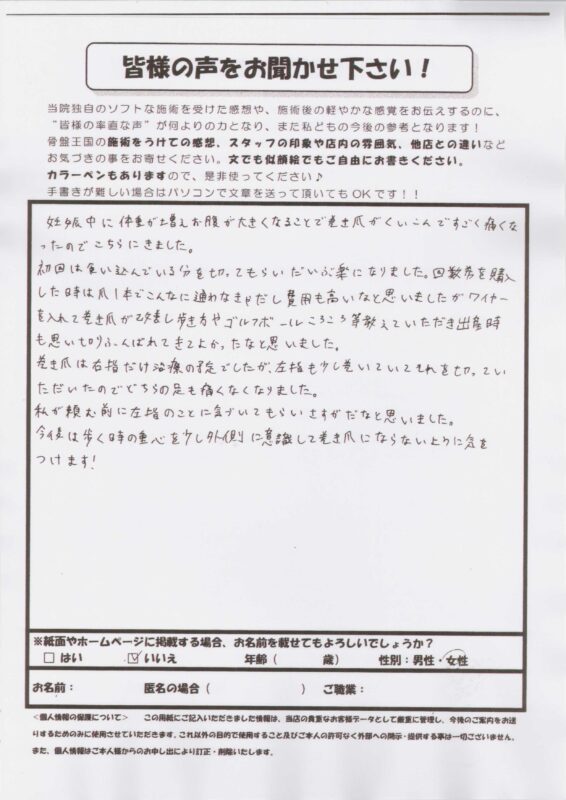 皆様の声をお聞かせ下さい！
当院独自のソフトな施術を受けた感想や、施術後の軽やかな感覚をお伝えするのに、
“皆様の率直な声”が何よりの力となり、また私どもの今後の参考となります！
骨盤王国の施術をうけての感想、スタッフの印象や店内の雰囲気、他店との違いなど
お気づきの事をお寄せください。文でも似顔絵でもご自由にお書きください。
カラーペンもありますので、是非使ってください♪
手書きが難しい場合はパソコンで文章を送って頂いてもOKです！！
妊娠中に体重が増えお腹が大きくなることで巻き爪がくいこんですごく痛くな
ったのでこちらにきました。
初回は食い込んでいる分を切ってもらいだいぶ楽になりました。回数券を購入
した時は爪1本でこんなに通わなきゃだし費用も高いなと思いましたがワイヤー
を入れて巻き爪が改善し歩き方やゴルフボールころころ等教えていただき出産時
も思い切りふんばれてきてよかったなと思いました。
巻き爪は右指だけ治療の予定でしたが、左指も少し巻いていてそれを切ってい
ただいたのでどちらの足も痛くなくなりました。
私が頼む前に左指のことに気づいてもらいさすがだなと思いました。
今後は歩く時の重心を少し外側に意識して巻き爪にならないように気を
つけます!
※紙面やホームページに掲載する場合、お名前を載せてもよろしいでしょうか？
□はい ☑いいえ 年齢（ 歳） 性別：男性・女性
お名前： 匿名の場合（ ） ご職業：
＜個人情報の保護について＞ この用紙にご記入いただきました情報は、当店の貴重なお客様データとして厳重に管理し、今後のご案内をお送
りするためのみに使用させていただきます。これ以外の目的で使用すること及びご本人の許可なく外部への開示・提供する事は一切ございません。
また、個人情報はご本人様からのお申し出により訂正・削除いたします。